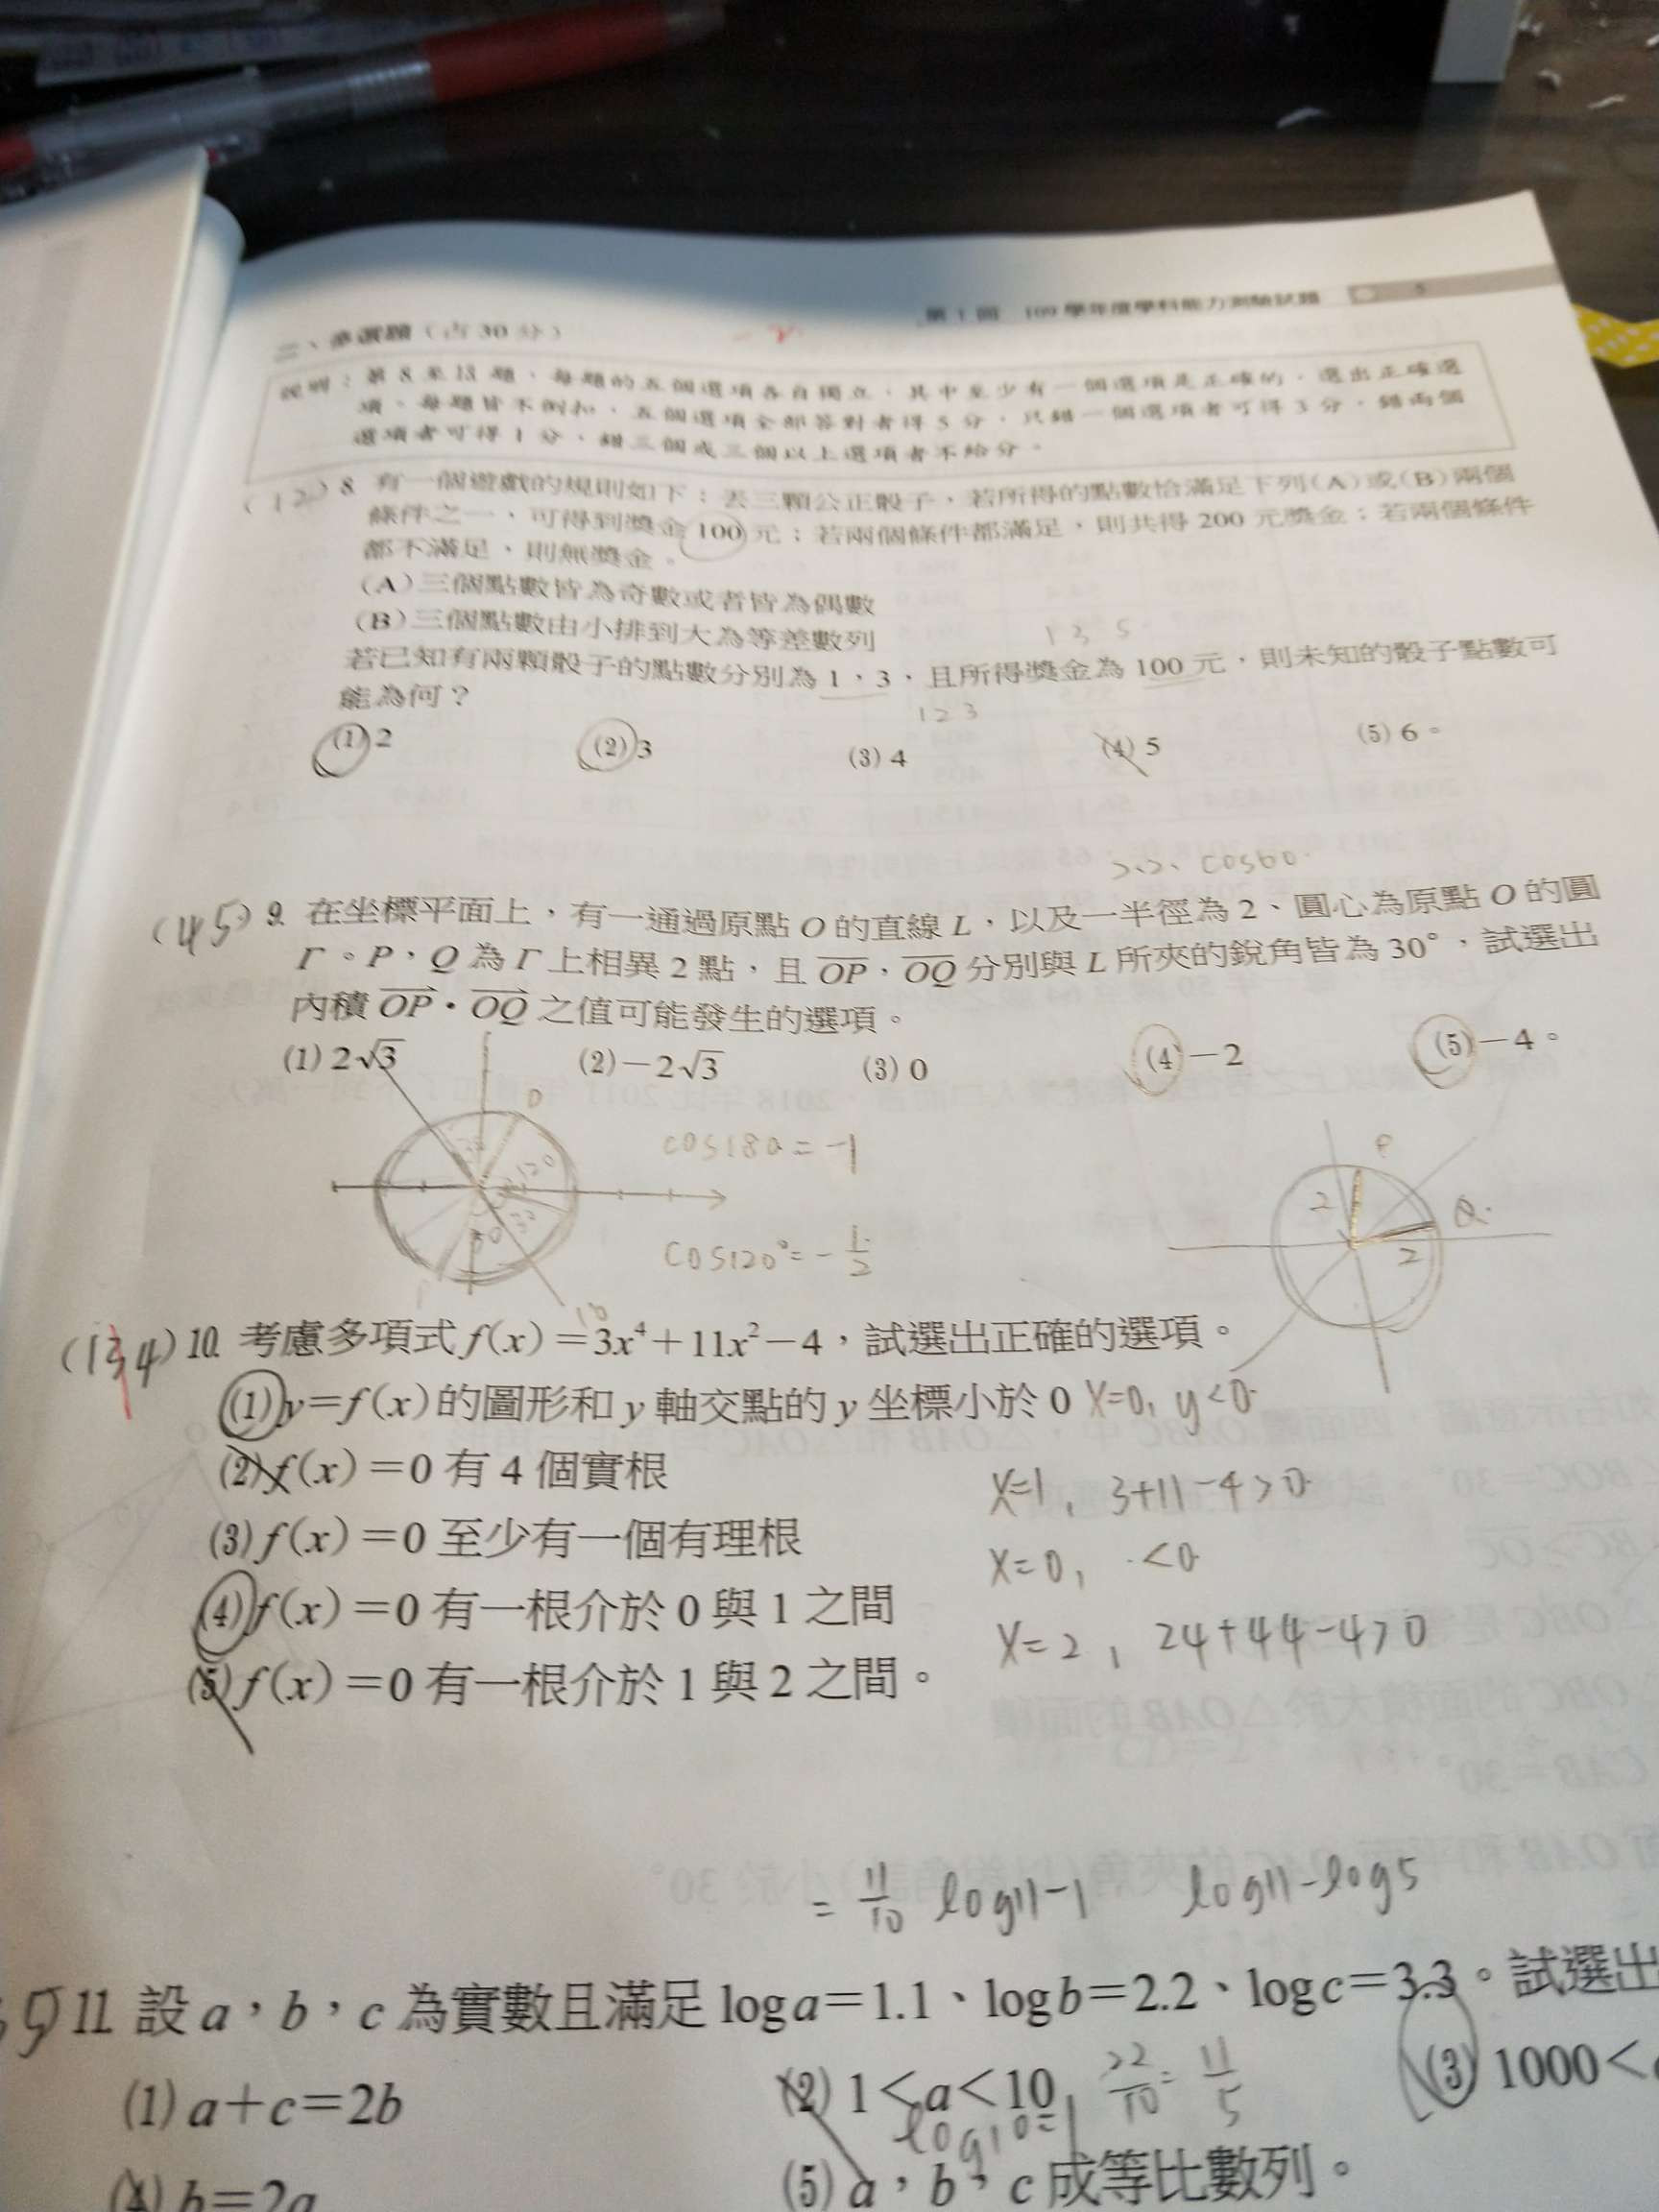 第1回 109學年度學科能力測驗試題 5
二、多選題（占30分）
說明：第8至13題，每題的五個選項各自獨立，其中至少有一個選項是正確的，選出正確選
項，每題皆不倒扣，五個選項全部答對者得5分，只錯一個選項者可得3分，錯兩個
選項者可得1分，錯三個或三個以上選項者不給分。
(12) 8. 有一個遊戲的規則如下：丟三顆公正骰子，若所得的點數恰滿足下列(A)或(B)兩個
條件之一，可得到獎金100元；若兩個條件都滿足，則共得200元獎金；若兩個條件
都不滿足，則無獎金。
(A)三個點數皆為奇數或者皆為偶數
(B)三個點數由小排到大為等差數列
1 3 5
若已知有兩顆骰子的點數分別為1，3，且所得獎金為100元，則未知的骰子點數可
能為何？
1 2 3
(1) 2 (2) 3 (3) 4 (4) 5 (5) 6。
2.2. cos60.
(45) 9. 在坐標平面上，有一通過原點O的直線L，以及一半徑為2、圓心為原點O的圓
Γ。P，Q為Γ上相異2點，且OP，OQ分別與L所夾的銳角皆為30°，試選出
內積OP・OQ之值可能發生的選項。
(1) 2√3 (2)−2√3 (3) 0 (4)−2 (5)−4。
cos180=-1
P
2
Q.
2
cos120°=-1/2
(134) 10. 考慮多項式f(x)=3x⁴+11x²−4，試選出正確的選項。
(1) y=f(x)的圖形和y軸交點的y坐標小於0 x=0, y<0
(2) f(x)=0有4個實根
x=1, 3+11-4>0
(3) f(x)=0至少有一個有理根
x=0, <0
(4) f(x)=0有一根介於0與1之間
x=2, 24+44-4>0
(5) f(x)=0有一根介於1與2之間。
=11/10 log11-1 log11-log5
5) 11. 設a，b，c為實數且滿足log a=1.1、log b=2.2、log c=3.3。試選出
(1) a+c=2b (2) 1<a<10 22/10=11/5 (3) 1000<
log10=1
(4) b=2a (5) a，b，c成等比數列。